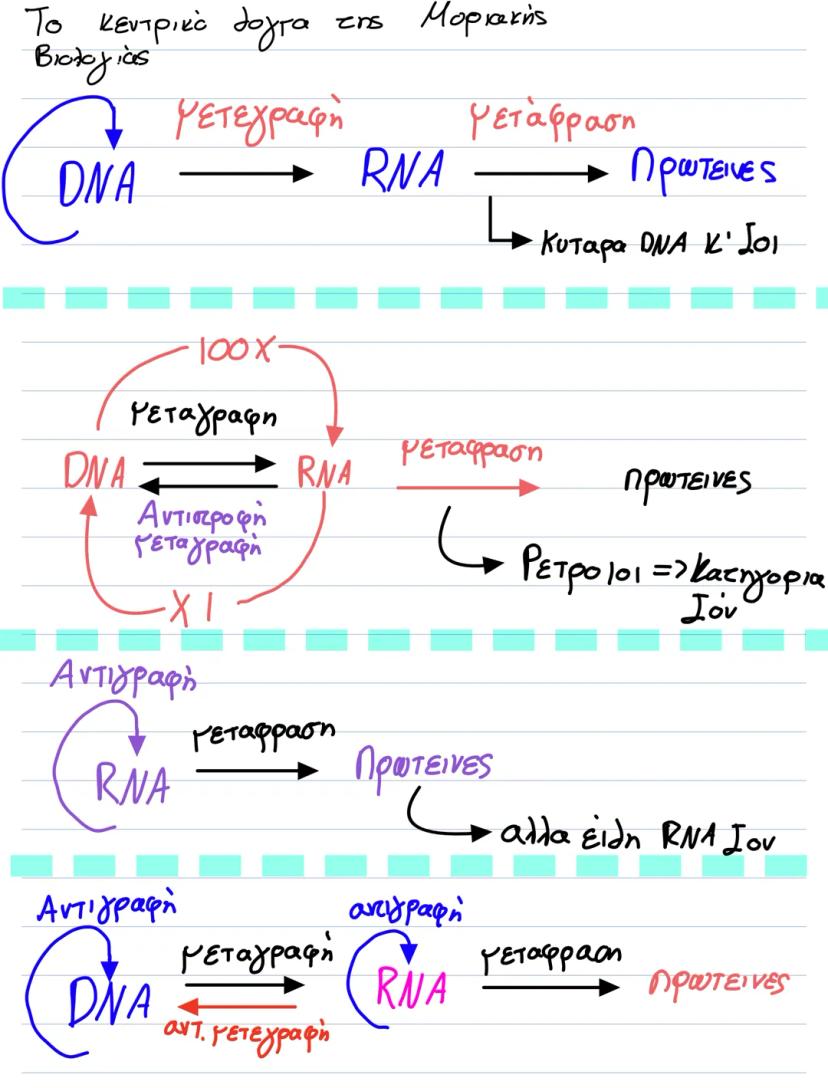 Το κεντρικό δόγμα της Μοριακής
Βιολογίας
μετεγραφή μετάφραση
DNA RNA Πρωτεινες
Κυταρα DNA κ' Ιοι
100X
μεταγραφη
DNA RNA μεταφραση πρωτεινες
Αντιστροφή
μεταγραφή
Ρετροιοι => Κατηγορια
Ιόν
X 1
Αντιγραφή
μεταφραση
RNA Πρωτεινες
αλλα είδη RNA Ιον
Αντιγραφή αντιγραφή
μεταγραφή μεταφραση
DNA RNA πρωτεινες
αντ. μετεγραφή